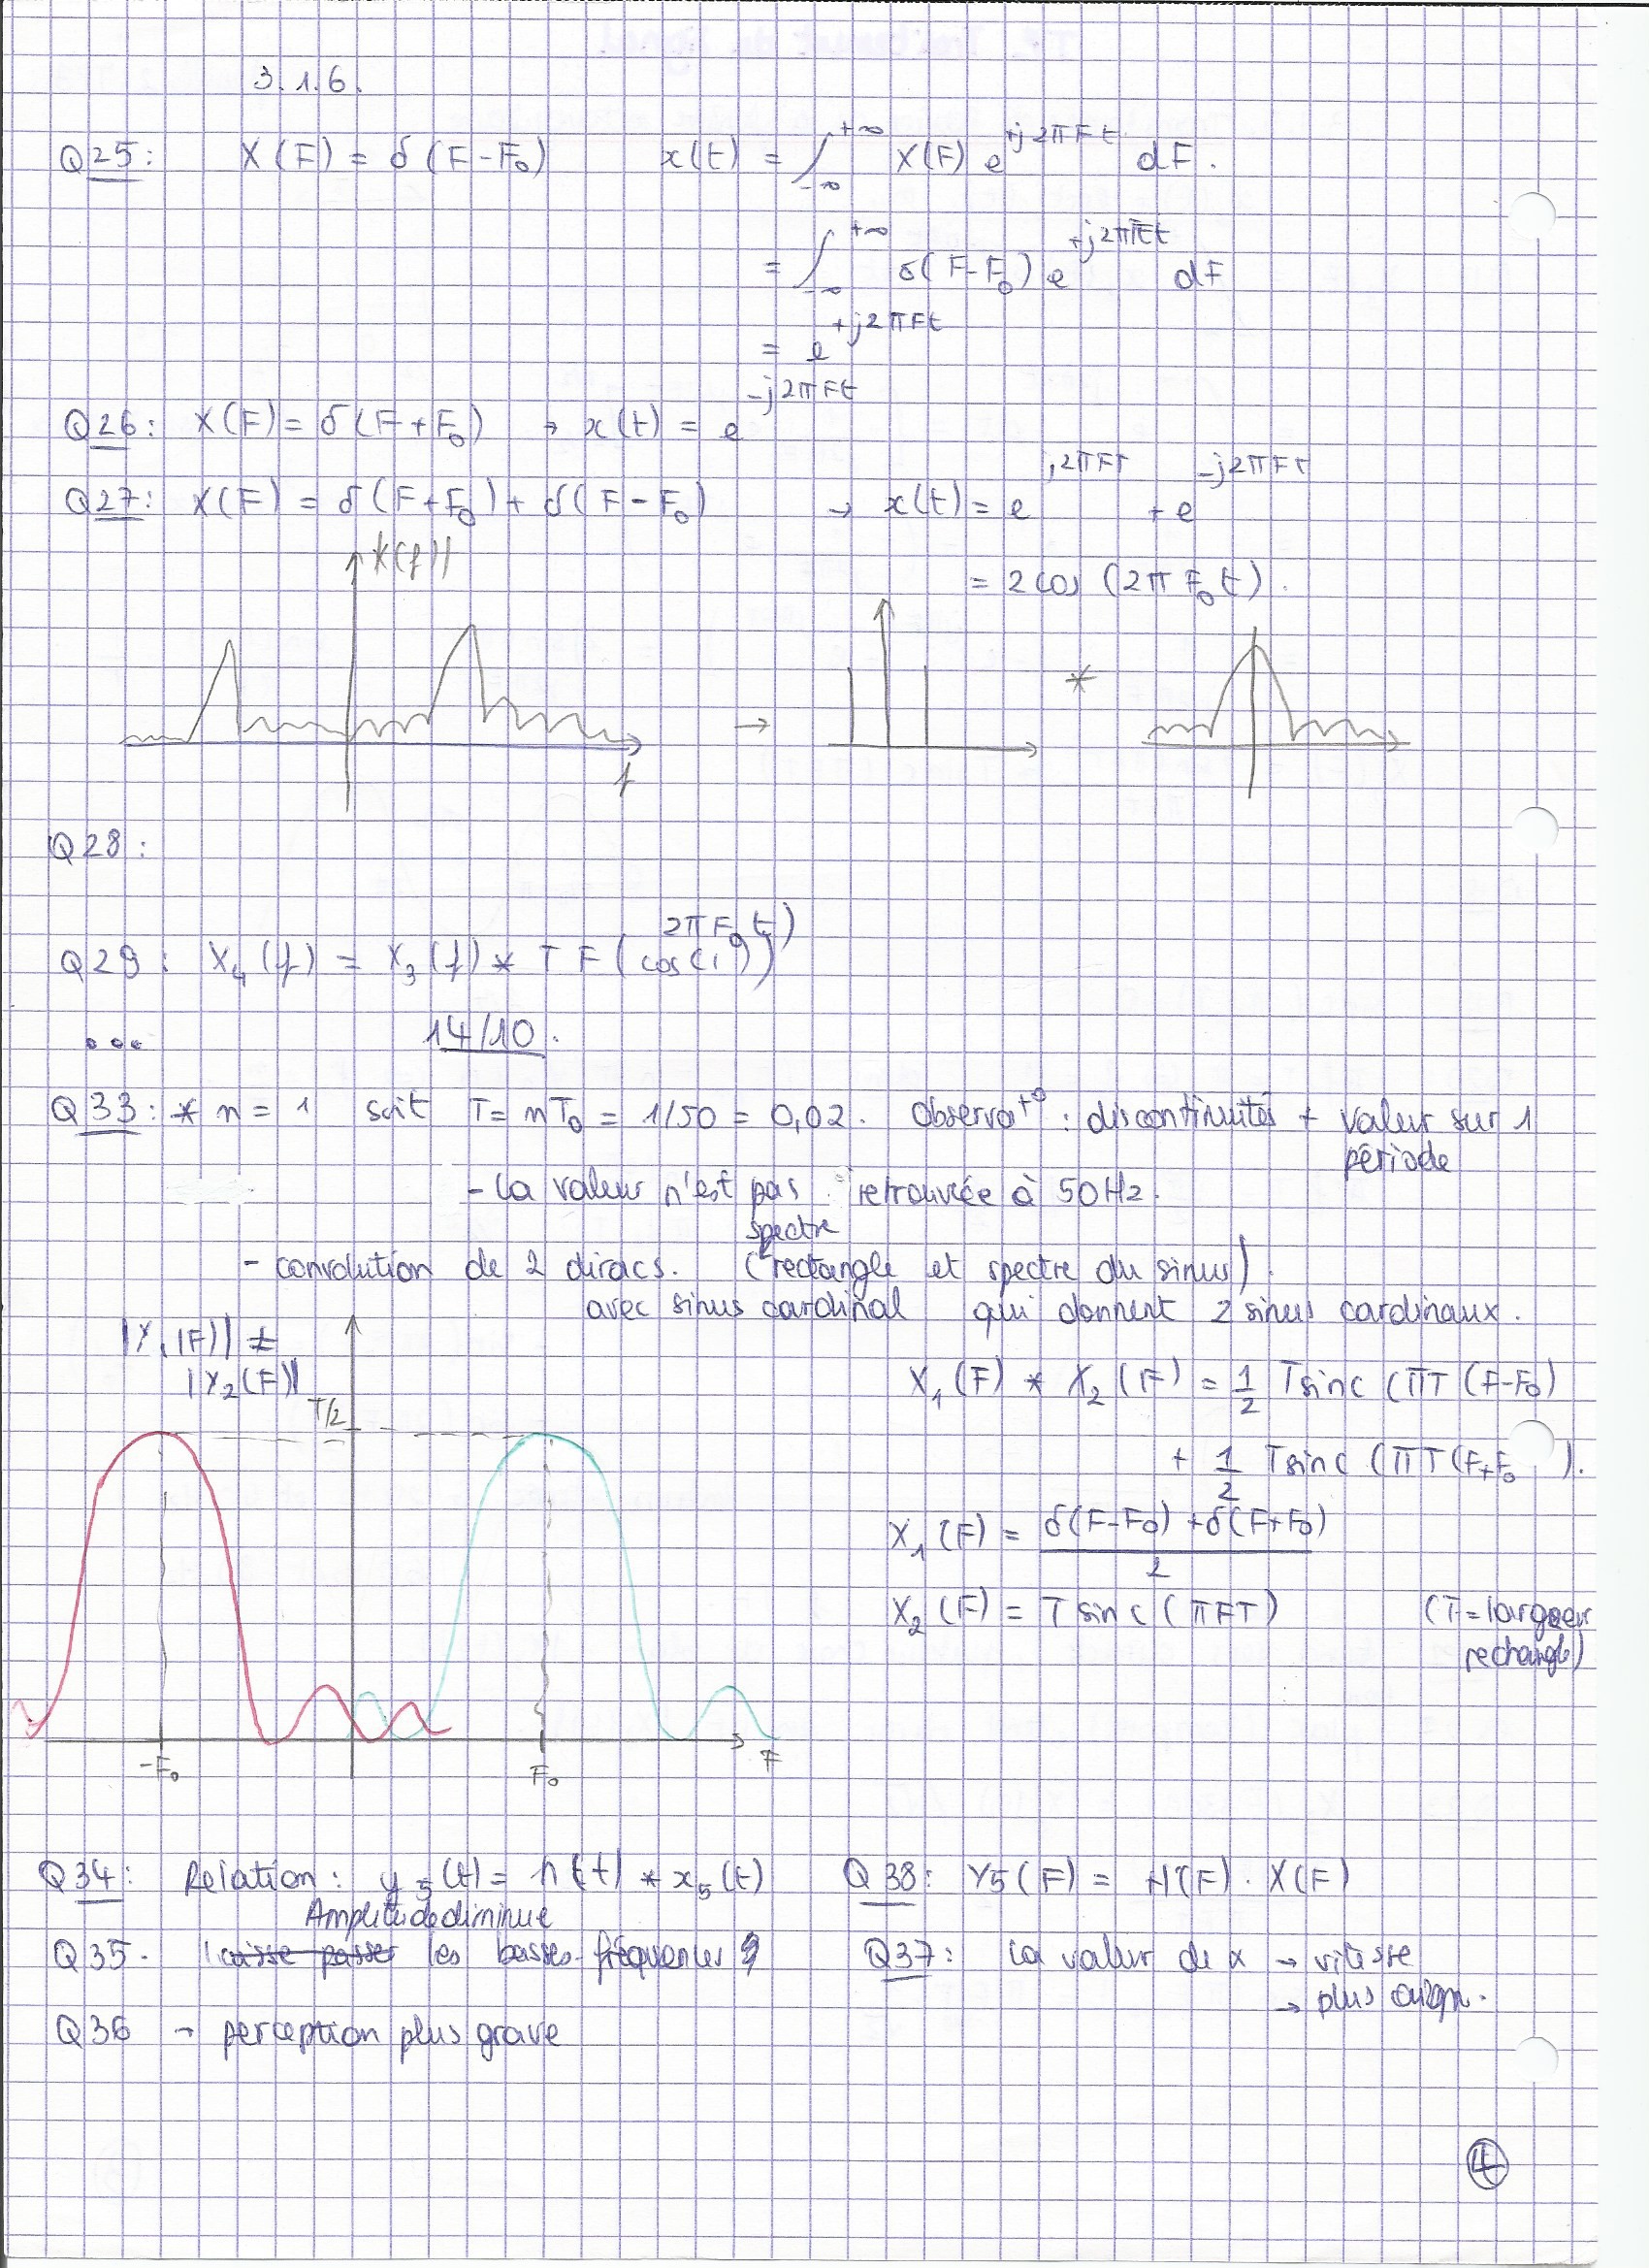 3.1.6.
Q25: X(F) = δ(F-F₀) x(t) = ∫₋∞^+∞ X(F) e^+j2πFt dF.
= ∫₋∞^+∞ δ(F-F₀) e^+j2πFt dF
= e^+j2πFt
Q26: X(F) = δ(F+F₀) → x(t) = e^-j2πFt
Q27: X(F) = δ(F+F₀) + δ(F-F₀) → x(t) = e^j2πFt + e^-j2πFt
= 2cos(2πF₀t).
X(f)
→ *
f
Q28:
Q29: X₄(f) = X₃(f) * TF(cos(2πF₀t))
... 14/10.
Q33: * n = 1 soit T = nT₀ = 1/50 = 0,02. Observat°: discontinuités + valeur sur 1
période
- la valeur n'est pas retrouvée à 50Hz.
spectre
- convolution de 2 diracs. (rectangle et spectre du sinus).
avec sinus cardinal qui donnent 2 sinus cardinaux.
|Y₁(F)| ≠
|Y₂(F)|
T/2
X₁(F) * X₂(F) = 1/2 Tsinc(πT(F-F₀)
+ 1/2 Tsinc(πT(F+F₀).
X₁(F) = δ(F-F₀) + δ(F+F₀) / 2
X₂(F) = T sinc(πFT) (T = largeur
rectangle)
-F₀ F₀ F
Q34: Relation: y₅(t) = h(t) * x₅(t) Q38: Y5(F) = H(F) . X(F)
Amplitude diminue
Q35. laisse passer les basses fréquences Q37: la valeur de x → vitesse
→ plus
Q36 → perception plus grave
4